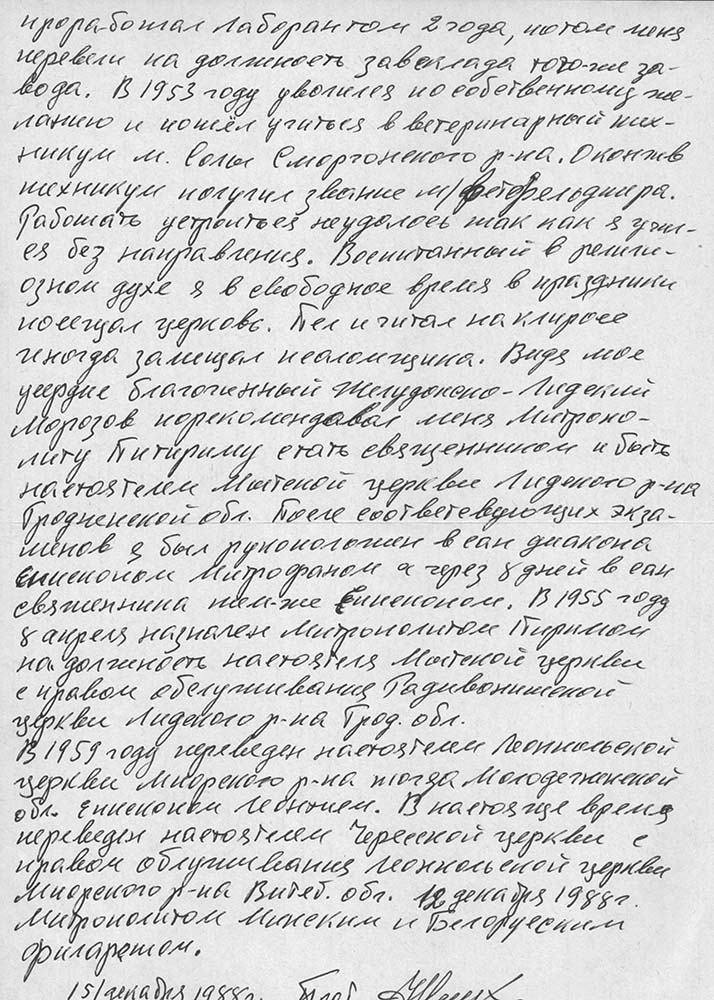 проработал лаборантом 2 года, потом меня
перевели на должность завсклада того-же за-
вода. В 1953 году уволился по собственному же-
ланию и пошёл учиться в ветеринарный тех-
никум м. Солы Сморгонского р-на. Окончив
техникум получил звание м/ветфельдшера.
Работать устроиться неудалось так как я учил-
ся без направления. Воспитанный в религи-
озном духе я в свободное время в праздники
посещал церковь. Пел и читал на клиросе
иногда замещал псаломщика. Видя мое
усердие благочинный Желудокско-Лидский
Морозов порекомендовал меня Митропо-
литу Питириму стать священником и быть
настоятелем Мытской церкви Лидского р-на
Гродненской обл. После соответсвующих экза-
менов я был рукоположен в сан диакона
епископом Митрофаном а через 8 дней в сан
священника тем-же Епископом. В 1955 году
8 апреля назначен Митрополитом Пиримом
на должность настоятеля Мытской церкви
с правом обслуживания Радивонишской
церкви Лидского р-на Грод. обл.
В 1959 году переведен настоятелем Леонпольской
церкви Миорского р-на тогда Молодечненской
обл. Епископом Леонтием. В настояще время
переведен настоятелем Чересской церкви с
правом облуживания Леонпольской церкви
Миорского р-на Витеб. обл. 12 декабря 1988г.
Митрополитом Минским и Белорусским
Филаретом.
15/декабря 1988г. Прот.